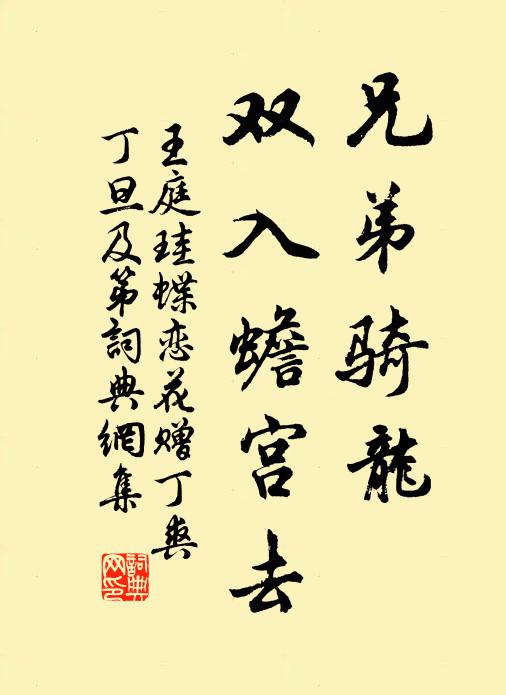 兄弟骑龍
双入蟾宫去
王庭珪蝶恋花赠丁爽
丁旦及第詞典網集
詞典网印